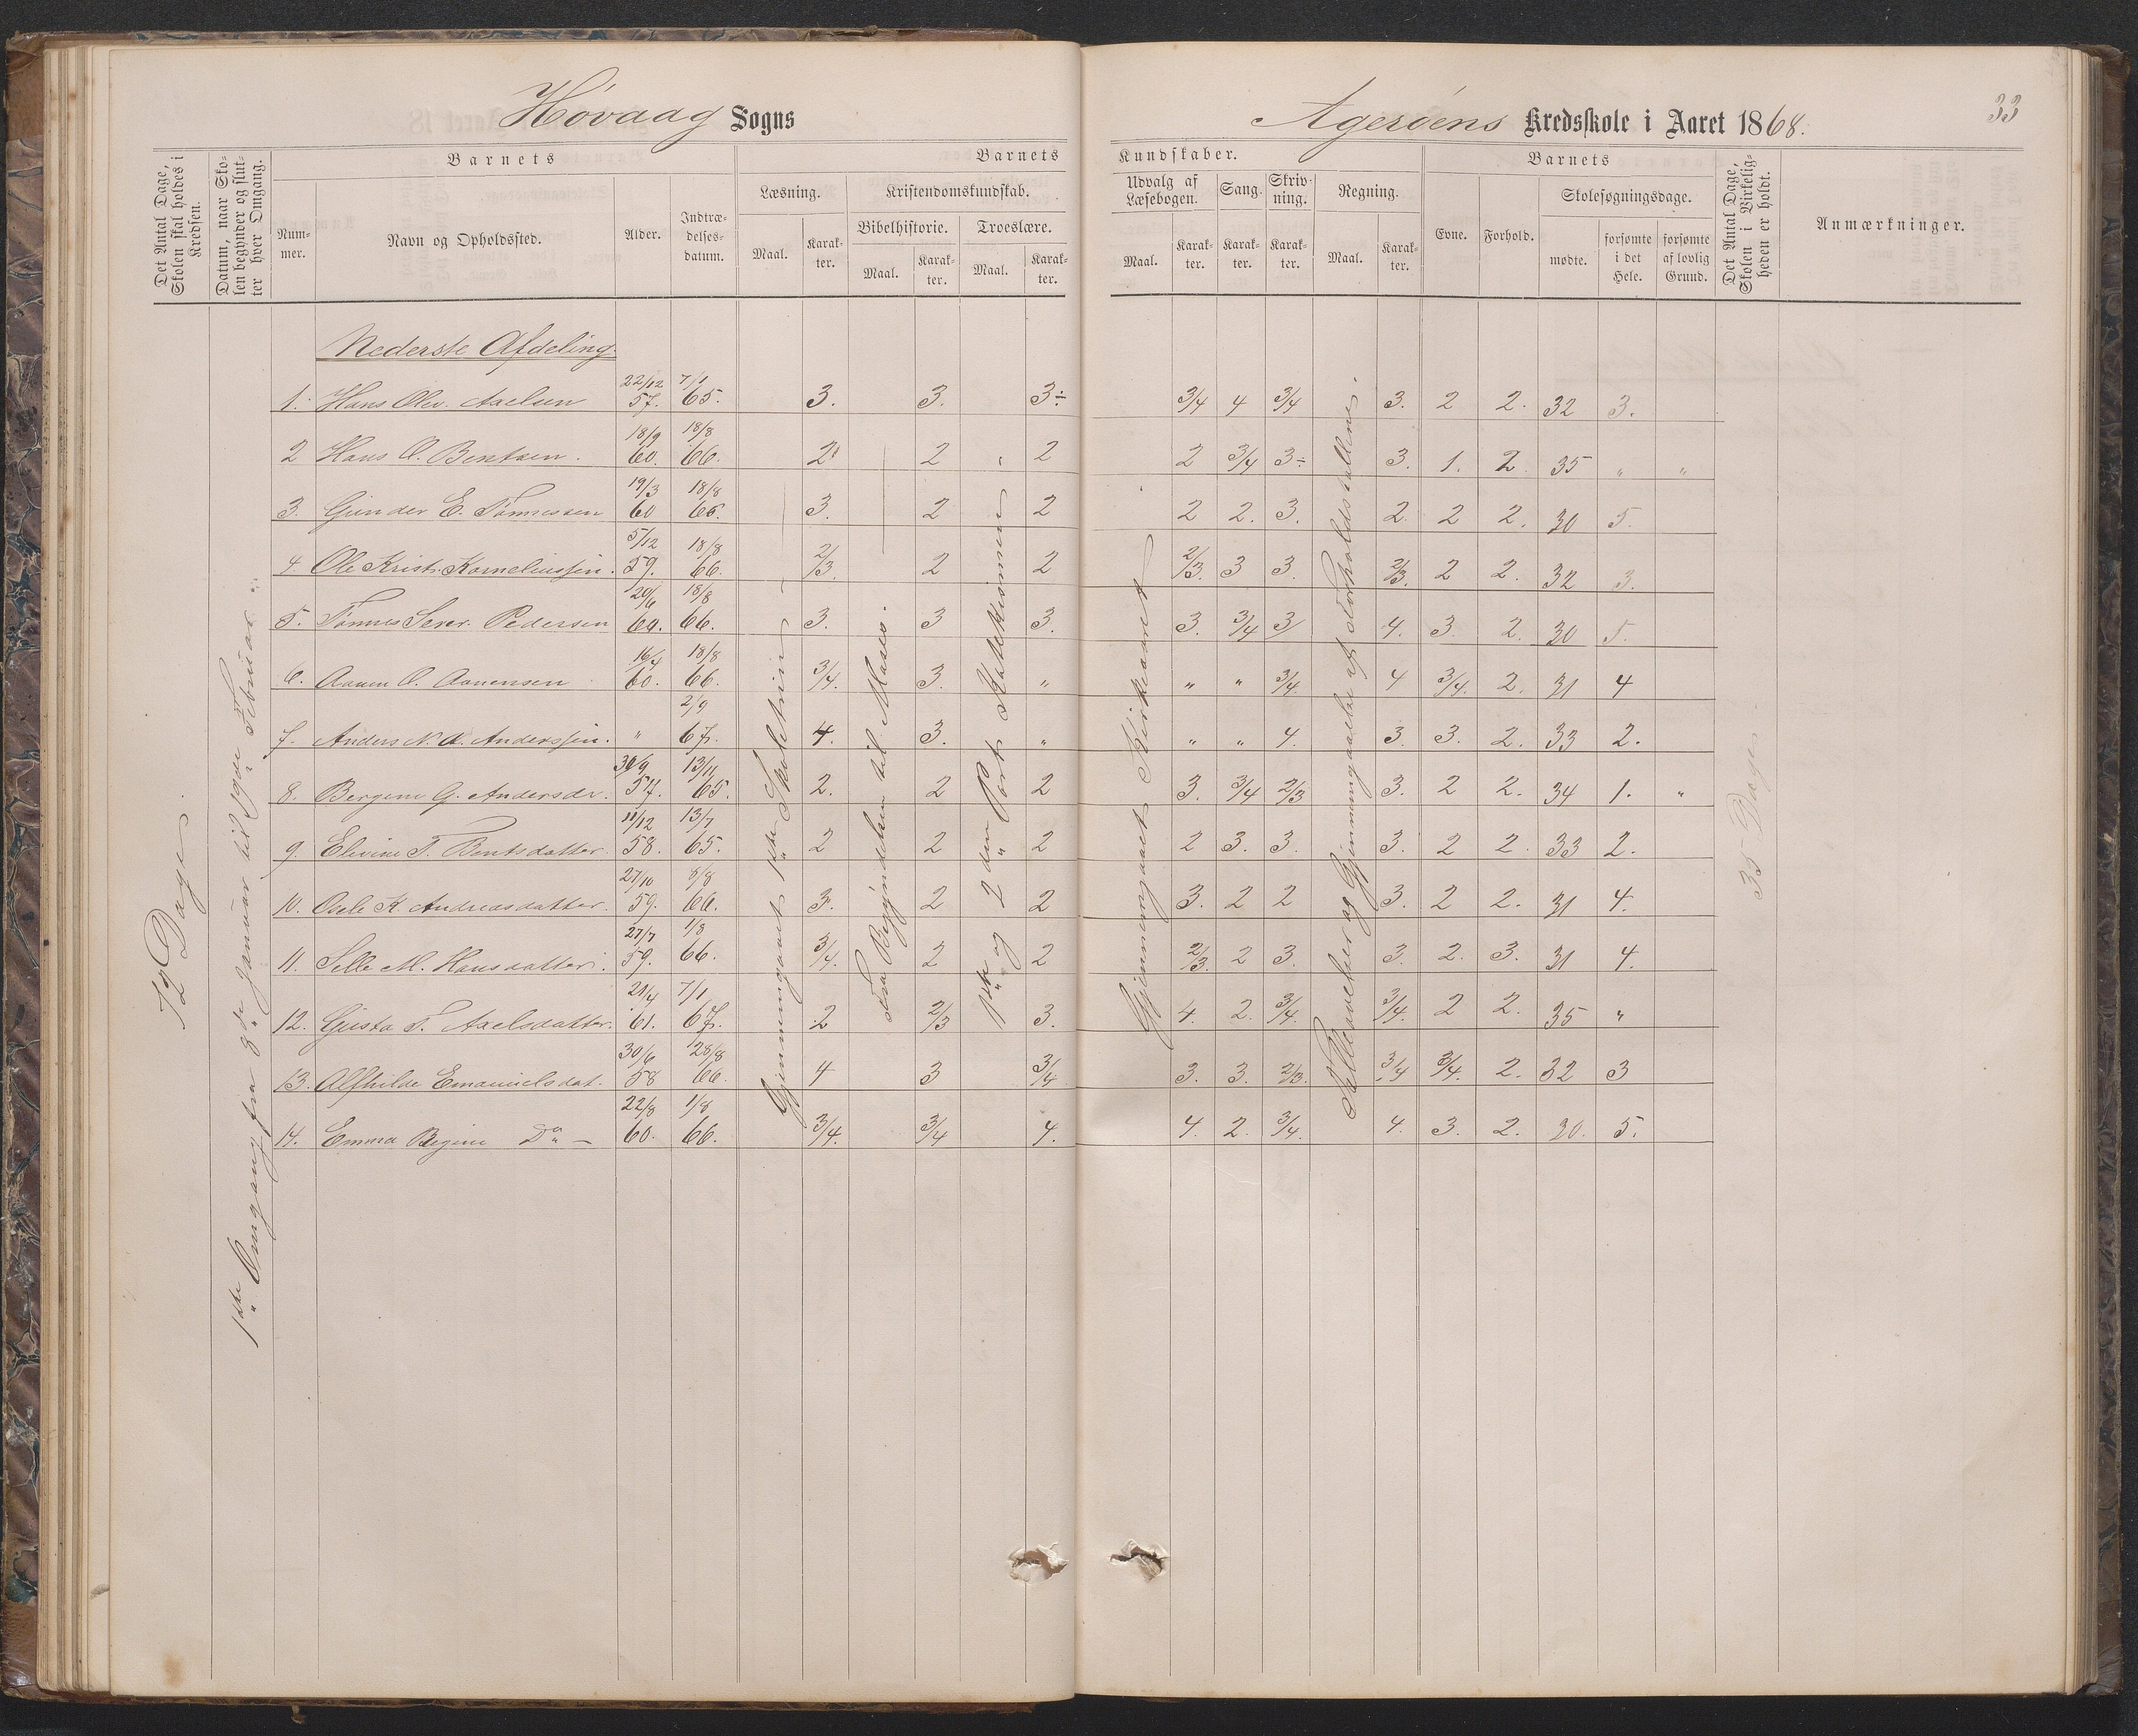 Høvaag Sogns
Agerøens Kredsskole i Aaret 1868.
33
Det Antal Dage, Skolen skal holdes i Kredsen.
Datum, naar Skolen begynder og slutter hver Omgang.
Barnets
Nummer.
Navn og Opholdssted.
Alder.
Indtrædelsesdatum.
Barnets Kundskaber.
Læsning.
Maal.
Karakter.
Kristendomskundskab.
Bibelhistorie.
Maal.
Karakter.
Troeslære.
Maal.
Karakter.
Udvalg af Læsebogen.
Maal.
Karakter.
Sang.
Karakter.
Skrivning.
Karakter.
Regning.
Maal.
Karakter.
Barnets
Evne.
Forhold.
Skolesøgningsdage.
mødte.
forsømte i det Hele.
forsømte af lovlig Grund.
Det Antal Dage, Skolen i Virkeligheden er holdt.
Anmærkninger.
72 Dage
1ste Omgang fra 8de Januar til 19de Februar
Gjennemgaaet 1ste Skoletrin
Fra Begyndelsen til Mose.
1ste og 2den Part Katekismen
Gjennemgaaet Kirkeaaret
35 Dage
Nederste Afdeling.
1. Hans Olev. Axelsen 22/12 57. 7/1 65. 3. 3. 3÷ 3/4 4 3/4 3. 2 2. 32 3.
2 Hans O. Bentsen. 18/9 60. 18/8 66. 2 2 2 2 3/4 3÷ 3. 1. 2. 35 " "
3. Gunder E. Tønnessen 19/3 60 18/8 66. 3. 2 2 2 2. 3. 2. 2 2. 30 5.
4 Ole Krist. Korneliussen. 5/12 59. 18/8 66. 2/3. 2 2 2/3. 3 3. 2/3. 2 2. 32 3.
5. Tønnes Sever. Pedersen 20/6 60. 18/8 66. 3. 3 3. 3. 3/4 3 4. 3. 2. 30 5.
6. Aanen O. Aanensen 16/4 60. 18/8 66. 3/4. 3. " " " 3/4. 4 3/4. 2. 31 4
7. Anders N. A. Anderssen. " 2/9 67. 4. 3. " " " 4. 3. 3. 2. 33 2.
8. Bergine G. Andersdr. 30/9 57. 13/11 65. 2. 2 2 3. 3/4 2/3 3. 2 2. 34 1. "
9. Elevine T. Bentsdatter. 11/12 58. 13/7 65. 2 2 2 2 3. 3. 3. 2 2. 33 2.
10. Osele K. Andreasdatter. 27/10 59. 8/8 66. 3. 2 2 3. 2 2 3. 2 2. 31 4.
11. Selle M. Hansdatter. 27/7 59. 1/8 66. 3/4. 2 2 2/3. 2 3. 3. 2. 3. 31 4.
12. Gusta T. Axelsdatter. 21/4 61. 7/1 67. 2 2/3 3. 4. 2. 3/4. 3/4. 2 2. 35 "
13. Alfhilde Emanuelsdat. 30/6 58 28/8 66. 4 3 3/4 3. 3. 2/3. 3/4 3/4. 2. 32 3
14. Emma Regine Do — 22/8 60. 1/8 66. 3/4. 3/4 4. 4. 2. 3/4. 4. 3. 2. 30. 5.